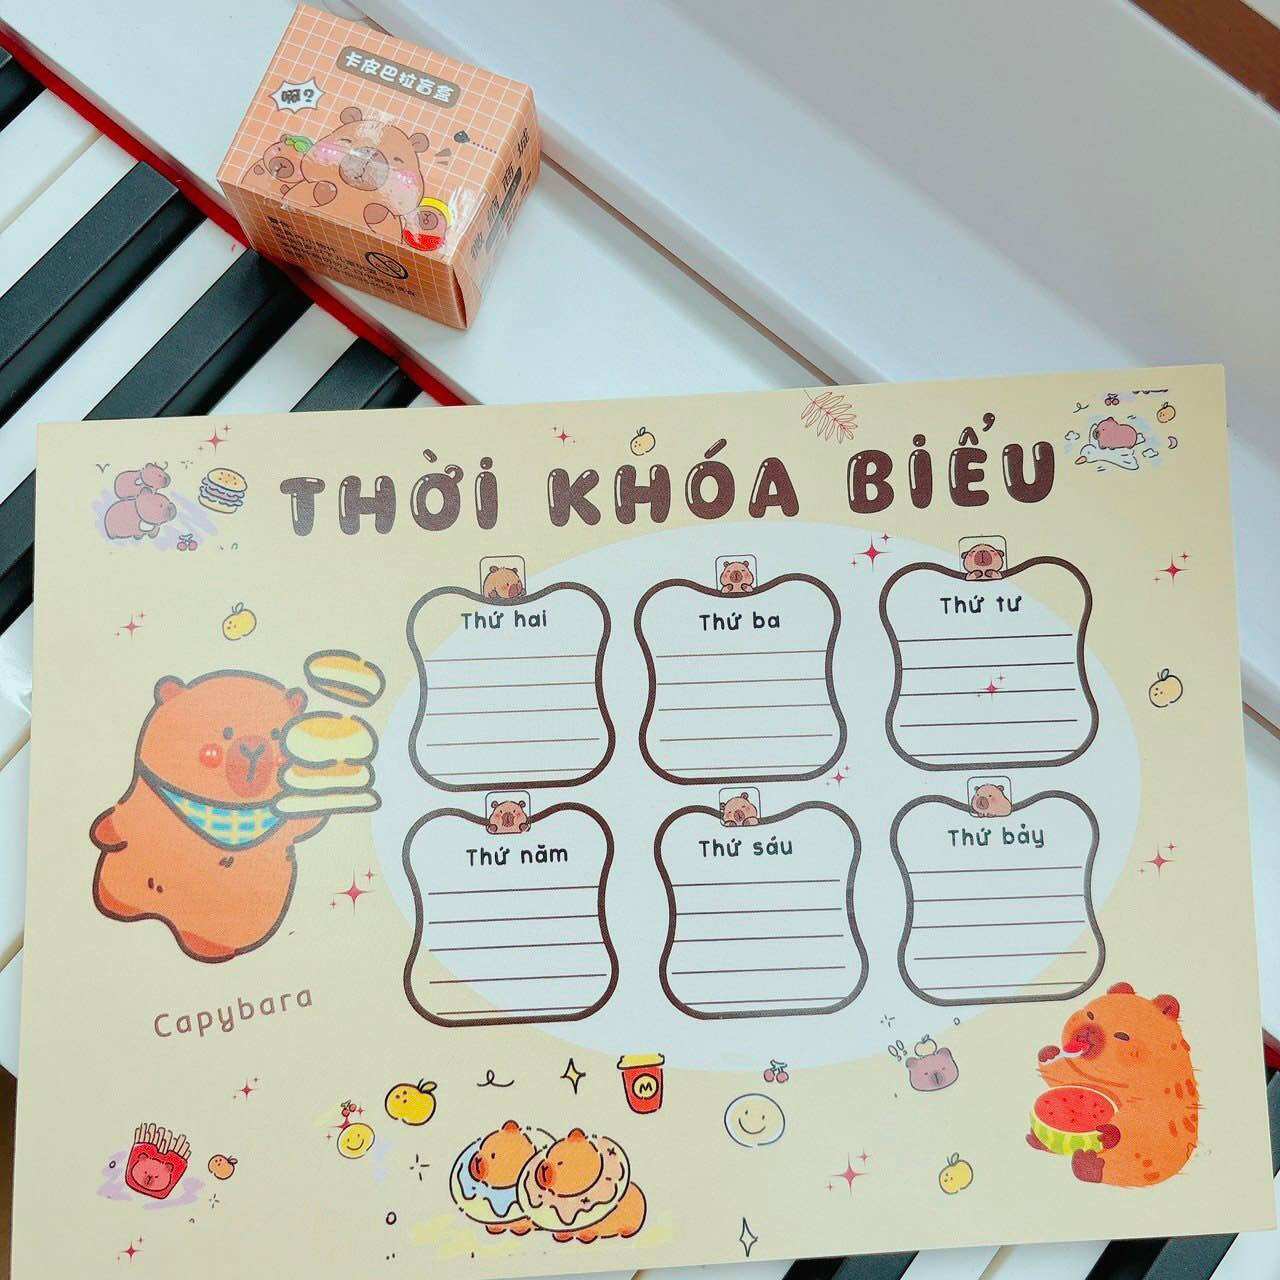 卡皮巴拉盲盒
嘛?
THỜI KHÓA BIỂU
Thứ hai
Thứ ba
Thứ tư
Thứ năm
Thứ sáu
Thứ bảy
Capybara
M